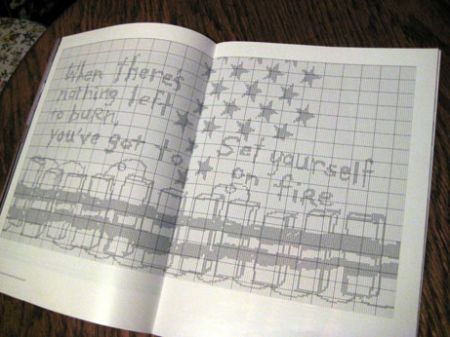 When there's
nothing left
to burn,
you've got to
Set yourself
on fire